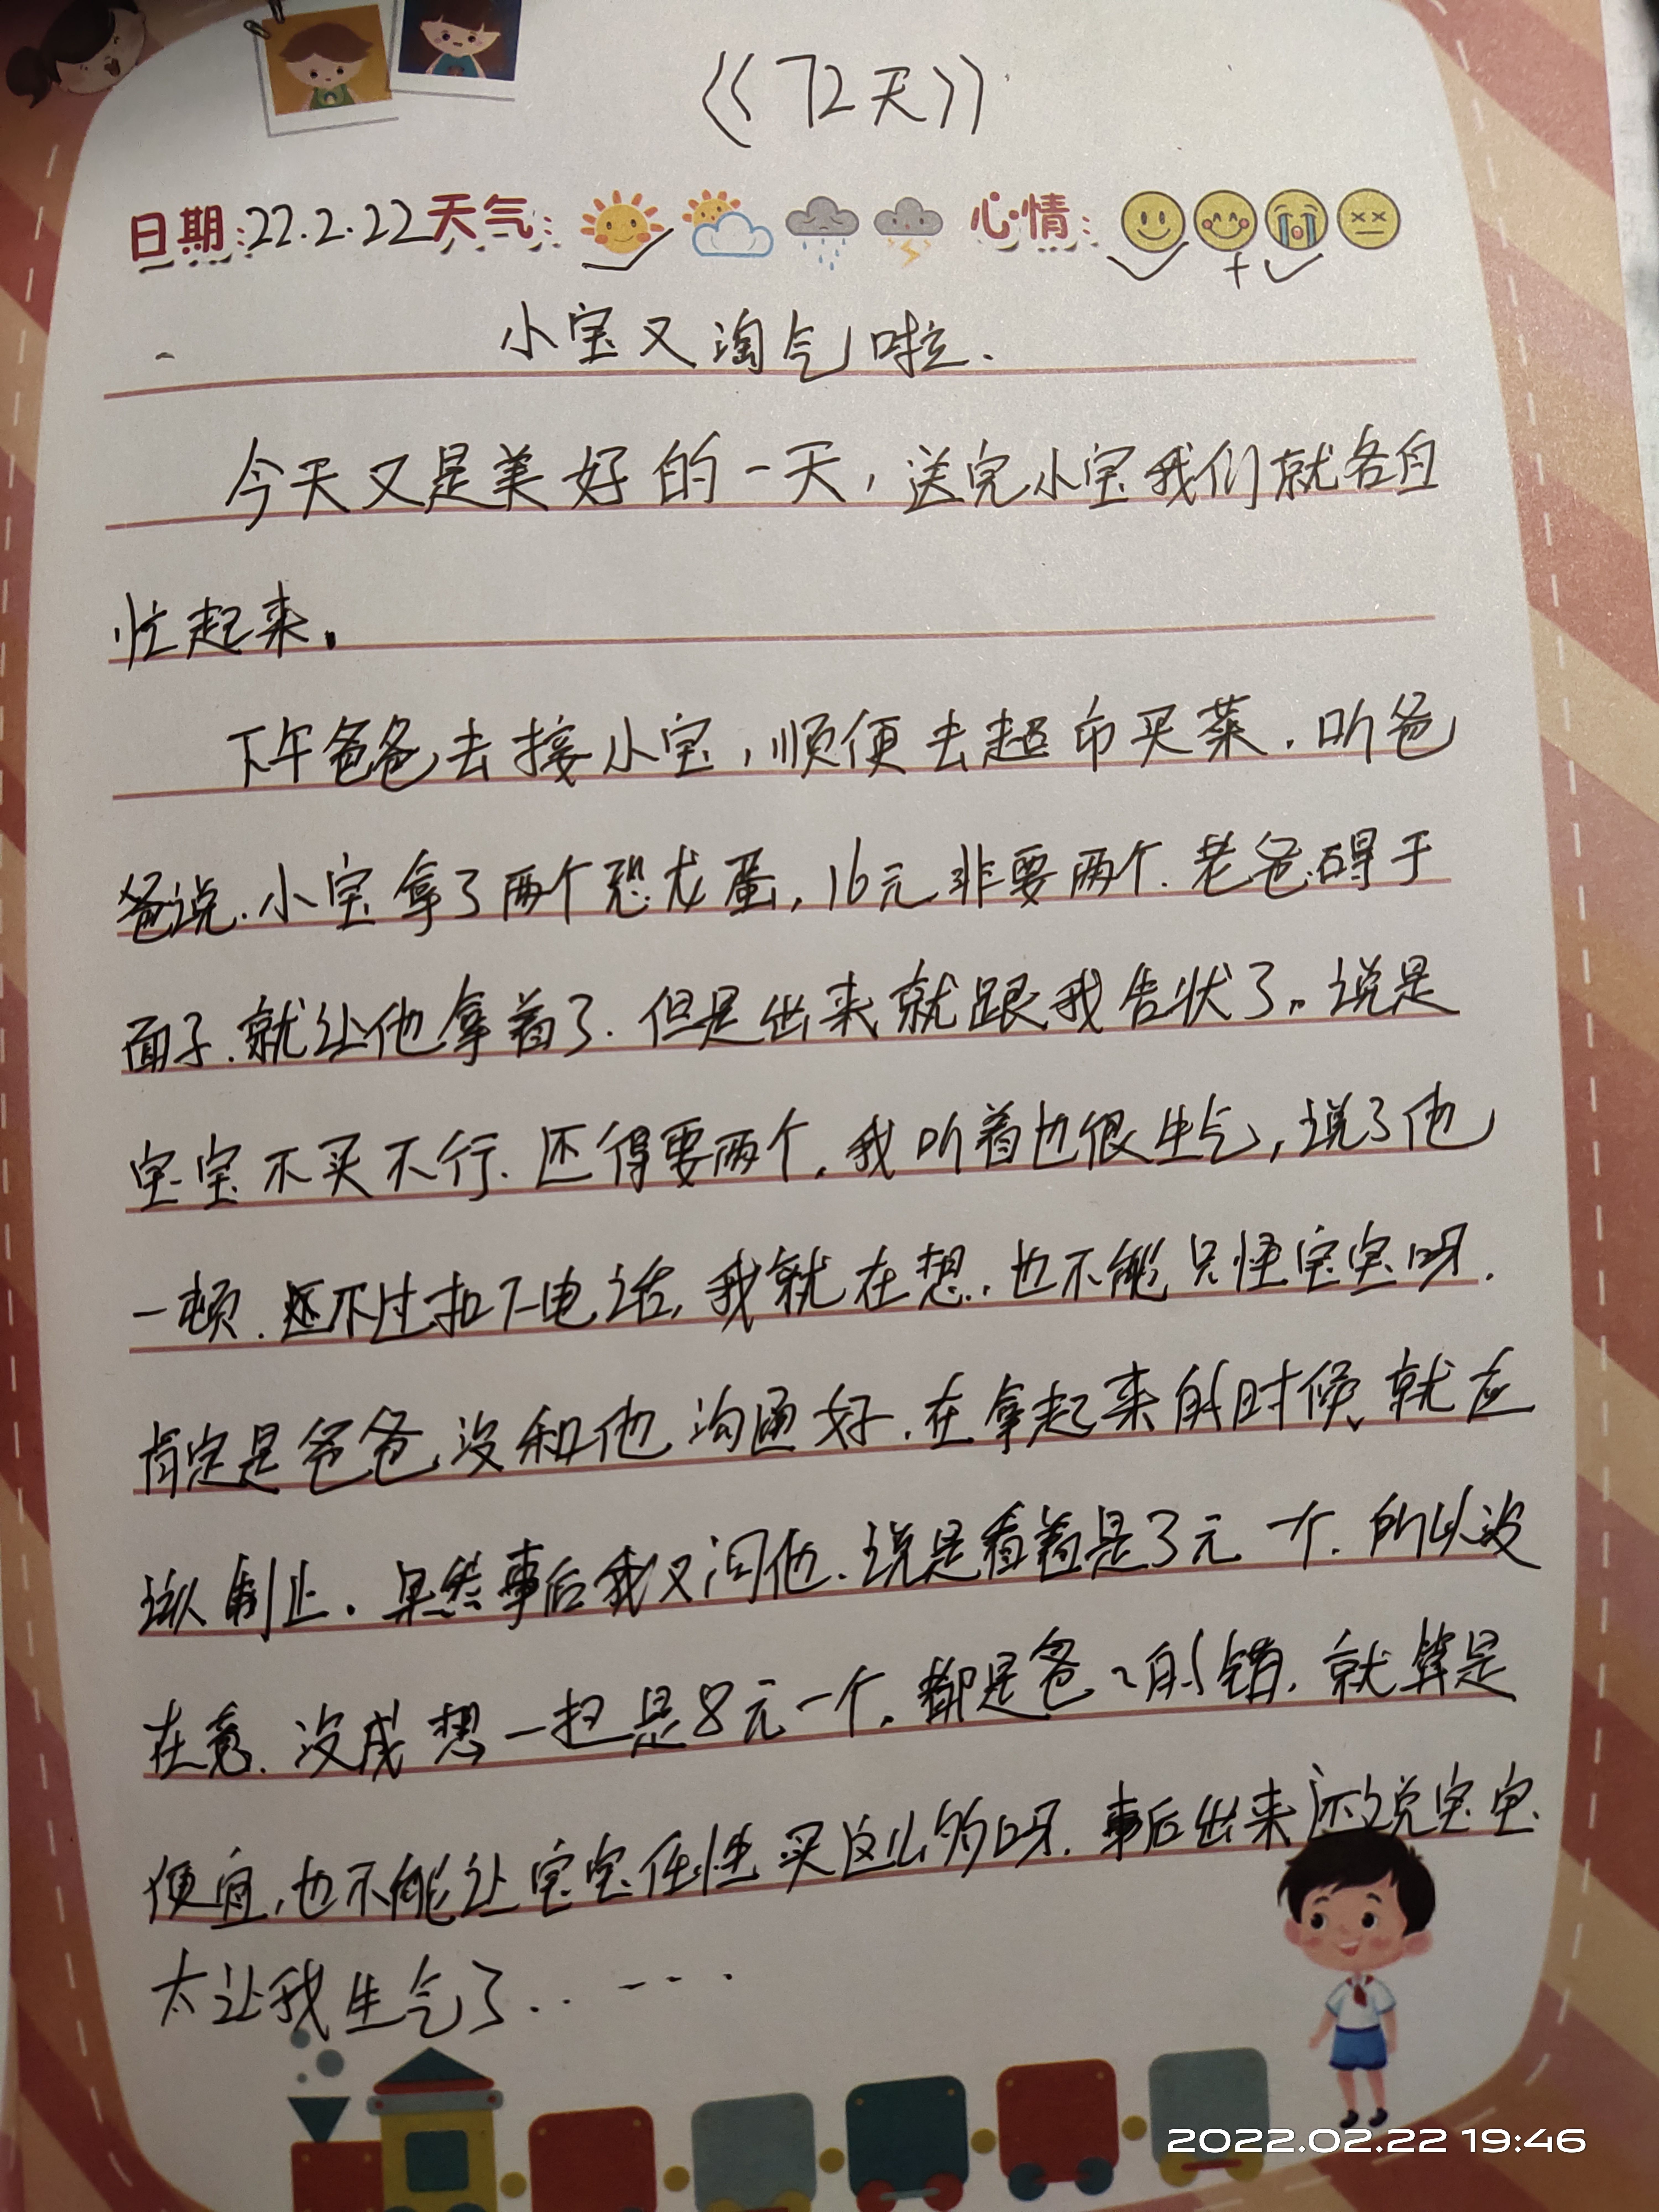 《72天》
日期:22.2.22天气: 心情:
小宝又淘气啦.
今天又是美好的一天,送完小宝我们就各自
忙起来。
下午爸爸去接小宝,顺便去超市买菜.听爸
爸说.小宝拿了两个恐龙蛋,16元非要两个.老爸碍于
面子.就让他拿着了.但是出来就跟我告状了。说是
宝宝不买不行.还得要两个.我听着也很生气,说了他
一顿.还不过扣下电话,我就在想.也不能只怪宝宝呀.
肯定是爸爸没和他沟通好.在拿起来的时候、就应
该制止.果然事后我又问他.说是看着是3元一个.所以没
在意.没成想一扫是8元一个.都是爸爸的错.就算是
便宜,也不能让宝宝任性买这么多的呀.事后出来还说宝宝
太让我生气了......
2022.02.22 19:46